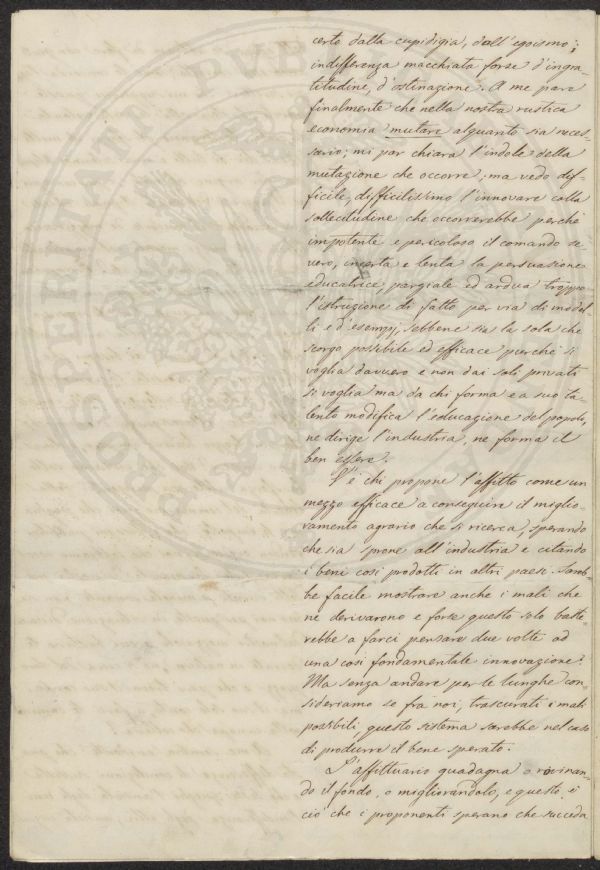 certo dalla cupidigia, dall'egoismo;
indifferenza macchiata forse d'ingra-
titudine, d'ostinazione. A me pare
finalmente che nella nostra rustica
economia mutare alquanto sia neces-
sario; mi par chiara l'indole della
mutazione che occorre; ma vedo dif-
ficile, difficilissimo l'innovare colla
sollecitudine che occorrerebbe perchè
impotente e pericoloso il comando se-
vero, incerta e lenta la persuasione
educatrice, parziale ed ardua troppo
l'istruzione di fatto per via di model-
li e d'esempj, sebbene sia la sola che
scorgo possibile ed efficace purchè si
voglia davvero e non dai soli privati
si voglia ma da chi forma e a suo ta-
lento modifica l'educazione del popolo,
ne dirige l'industria, ne forma il
ben essere.
V'è chi propone l'affitto come un
mezzo efficace a conseguire il miglio-
ramento agrario che si ricerca, sperando
che sia sprone all'industria e citando
i beni così prodotti in altri paesi. Sareb-
be facile mostrare anche i mali che
ne derivarono e forse questo solo baste-
rebbe a farci pensare due volte ad
una così fondamentale innovazione.
Ma senza andare per le lunghe con-
sideriamo se fra noi, trascurati i mali
possibili, questo sistema sarebbe nel caso
di produrre il bene sperato.
L'affittuario guadagna o rovinan-
do il fondo, o migliorandolo, e questo è
ciò che i proponenti sperano che succeda
PROSPERITATI PUBL